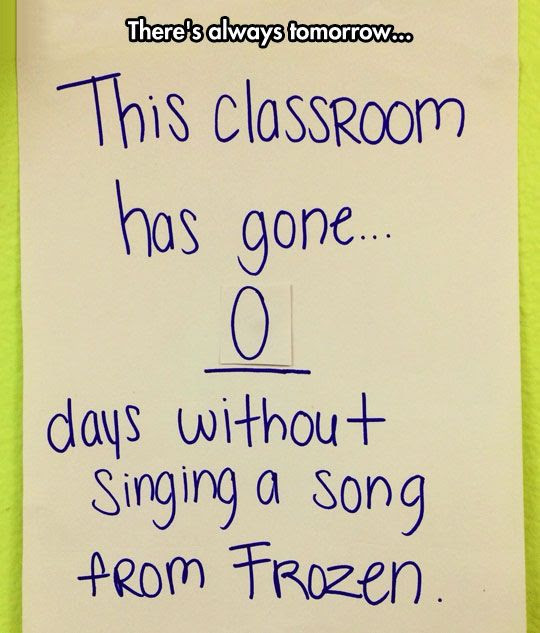 There's always tomorrow...
This classroom
has gone...
0
days without
singing a song
from Frozen.